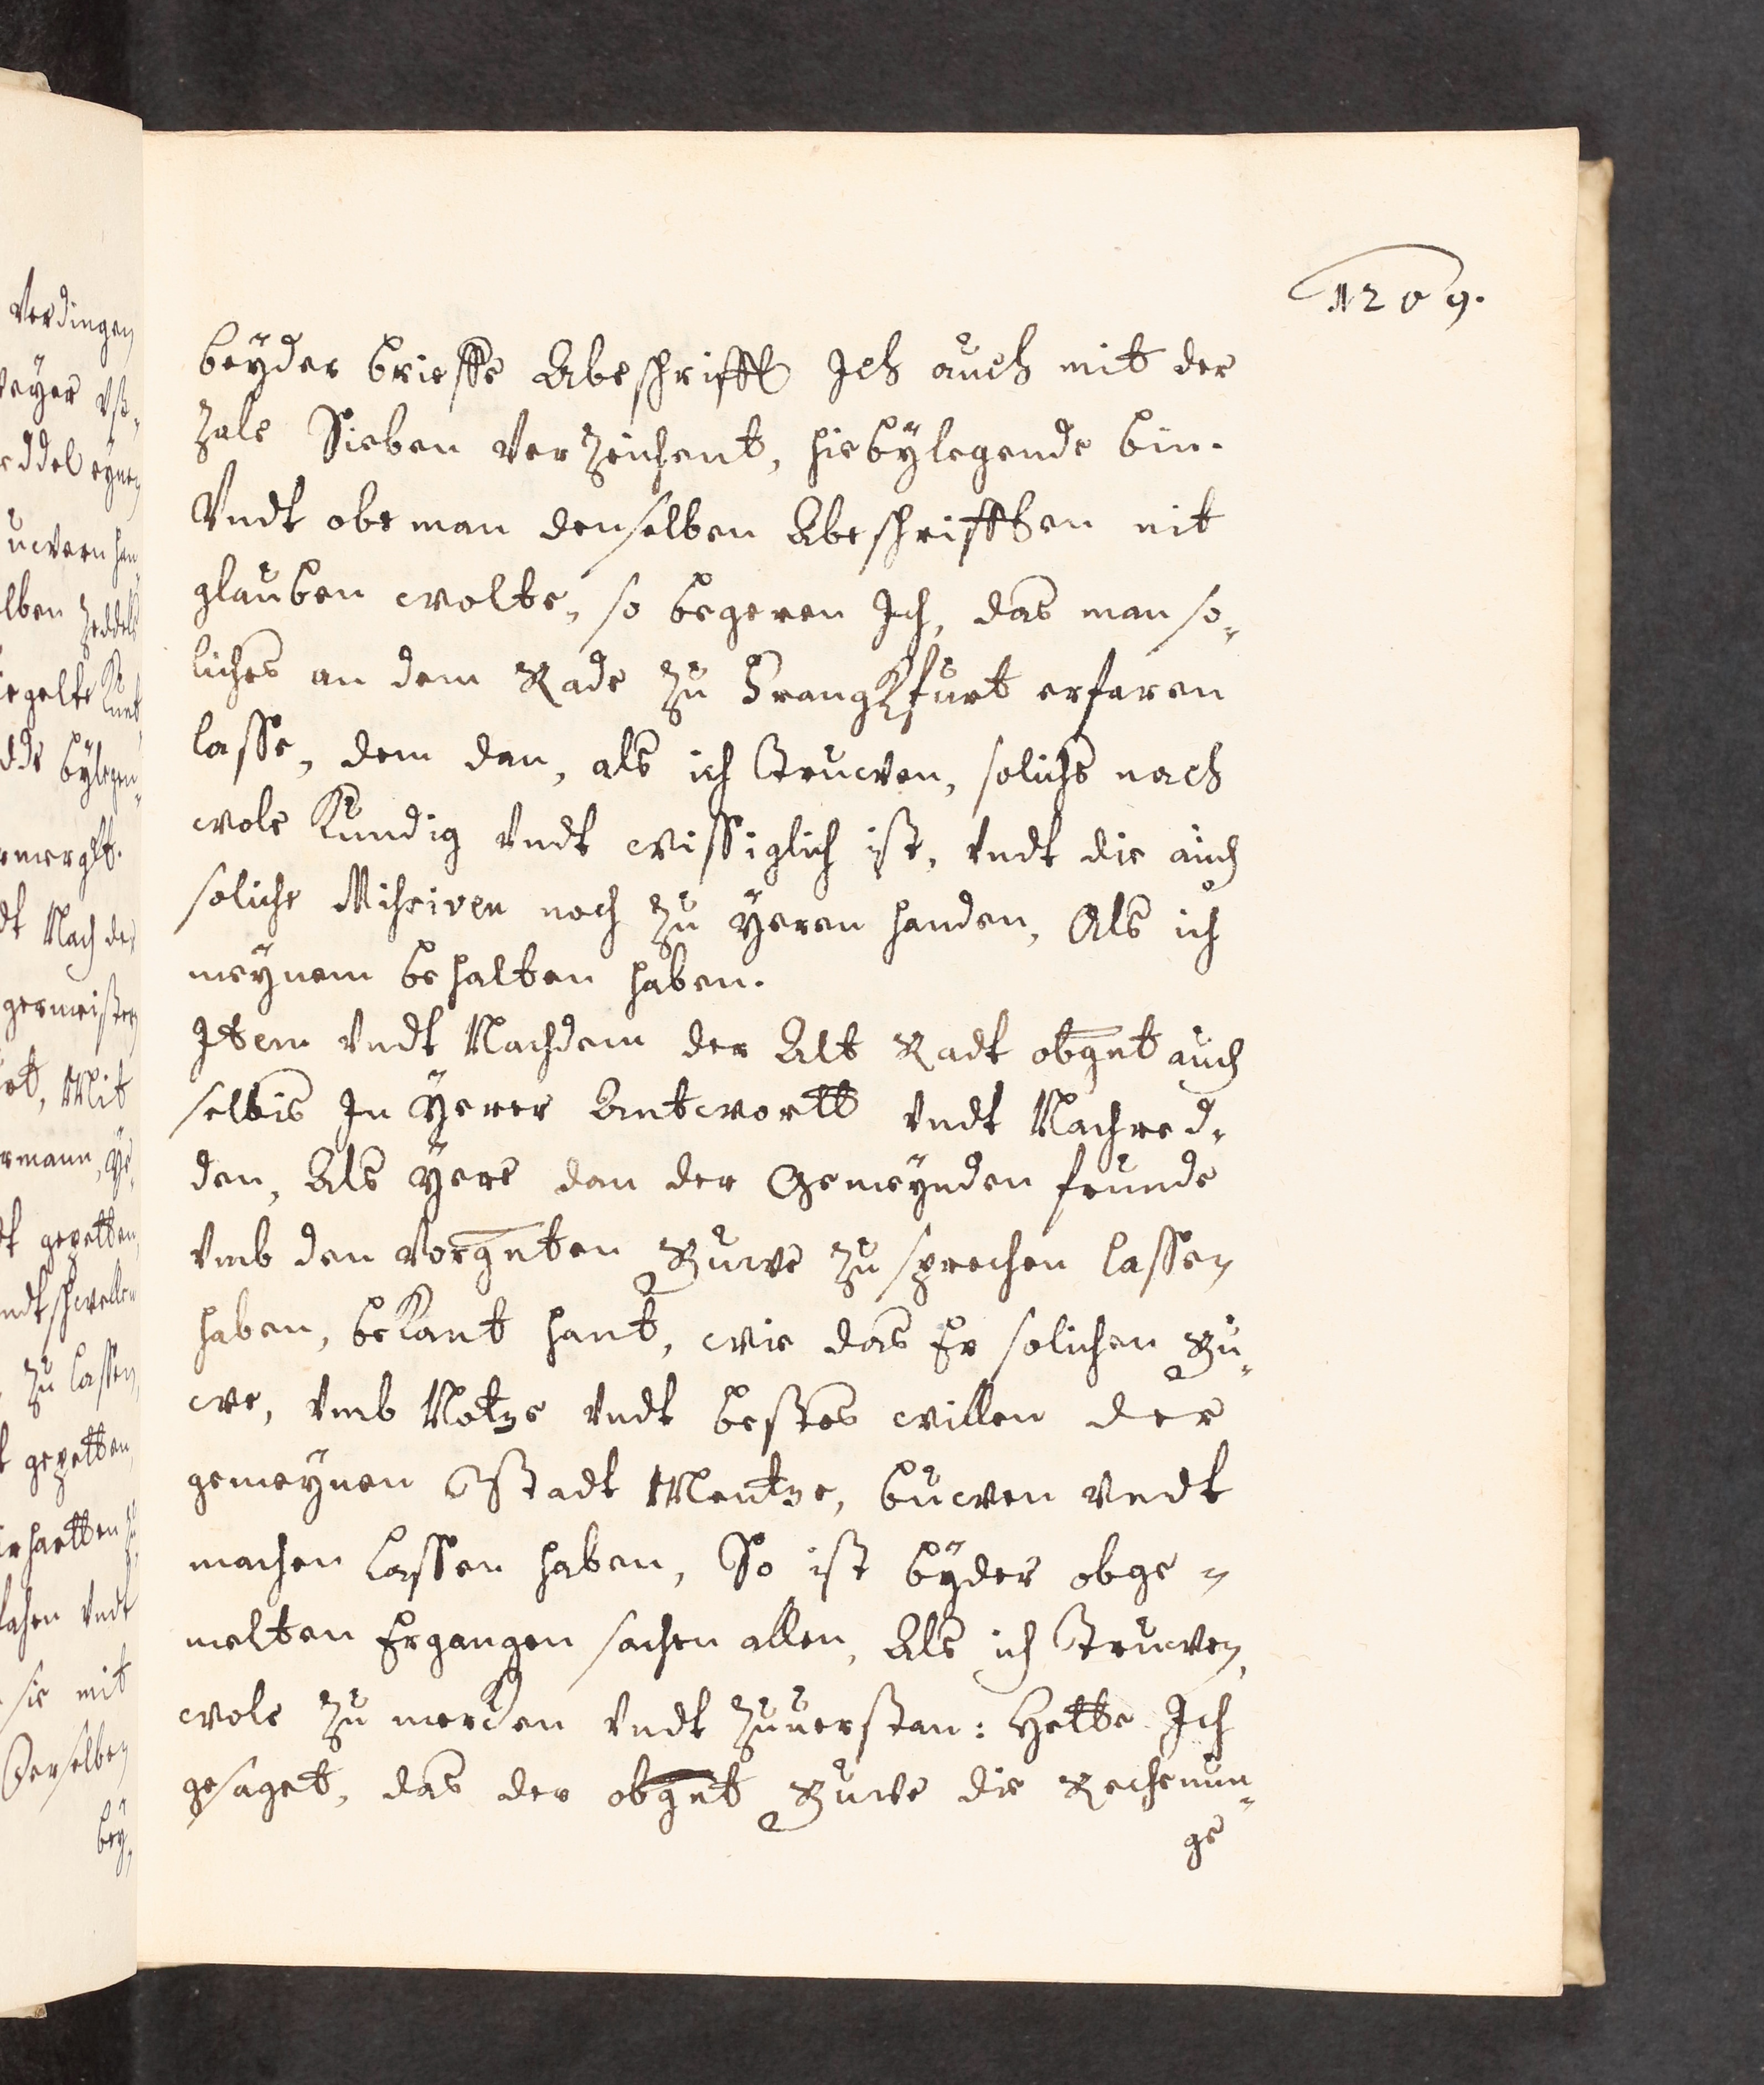 1209.
beyder brieffe Abeschrifft Ich auch mit der
Zale Sieben verzeichent, hiebÿlegende bin.
Vndt obe man denselben Abeschrifften nit
glauben wolte, so begeren Ich, das man so-
liches an dem Rade zu Frangkfurt erfaren
lasse, dem dan, als ich truwen, solichs noch
wole Kundig vndt wissiglich ist, vndt die auch
soliche Missiven noch zu ÿeren handen, Als ich
meÿnem behalten haben.
Item vndt Nachdem der Alt Radt obgnt auch
selbis In ÿerer Antwortt vndt Nachred-
den, Als ÿere dan der Gemeÿnden frunde
vmb den vorgnten Buwe zu sprechen lassen
haben, bekant hant, wie das Er solichen Bu-
we, vmb Notze vndt bestes willen der
gemeÿnen Stadt Mentze, buwen vndt
machen lassen haben, So ist bÿder obge-
melten Ergangen sachen allen, Als ich truwen,
wole zu mercken vndt zuuerstan: Hette Ich
gesaget, das der obgnt Buwe die Rechenun-
ge
verdingen
weÿer vß-
eddel eynen
uwern han-
lben Zeddels
iegelte Kunt
dde bÿlegen-
dt Nach der
germeister
ot, Mit
rmann, ÿe-
dt gepetten
ndt schwellen
zu lassen,
t gepetten,
erhartten zu
lahen vndt
sie mit
Derselben
beÿ-